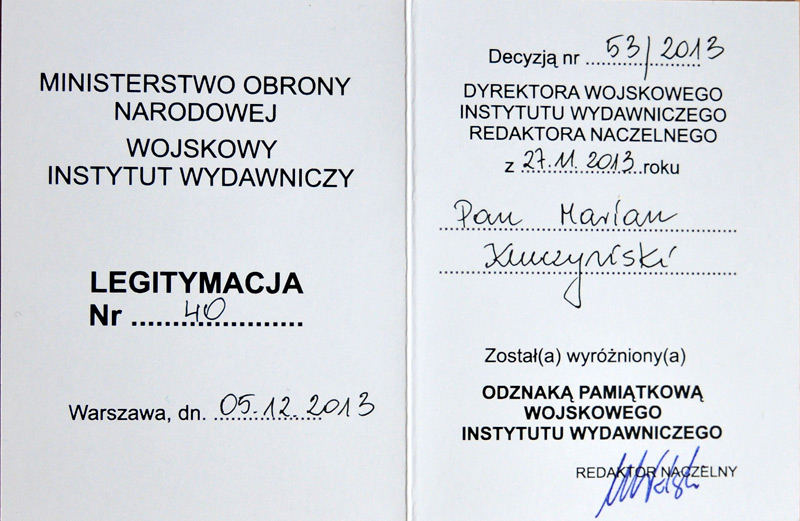 MINISTERSTWO OBRONY
NARODOWEJ
WOJSKOWY
INSTYTUT WYDAWNICZY
LEGITYMACJA
Nr ....40....
Warszawa, dn. 05.12.2013
Decyzją nr 53/2013
DYREKTORA WOJSKOWEGO
INSTYTUTU WYDAWNICZEGO
REDAKTORA NACZELNEGO
z 27.11.2013 roku
Pan Marian
Został(a) wyróżniony(a)
ODZNAKĄ PAMIĄTKOWĄ
WOJSKOWEGO
INSTYTUTU WYDAWNICZEGO
REDAKTOR NACZELNY